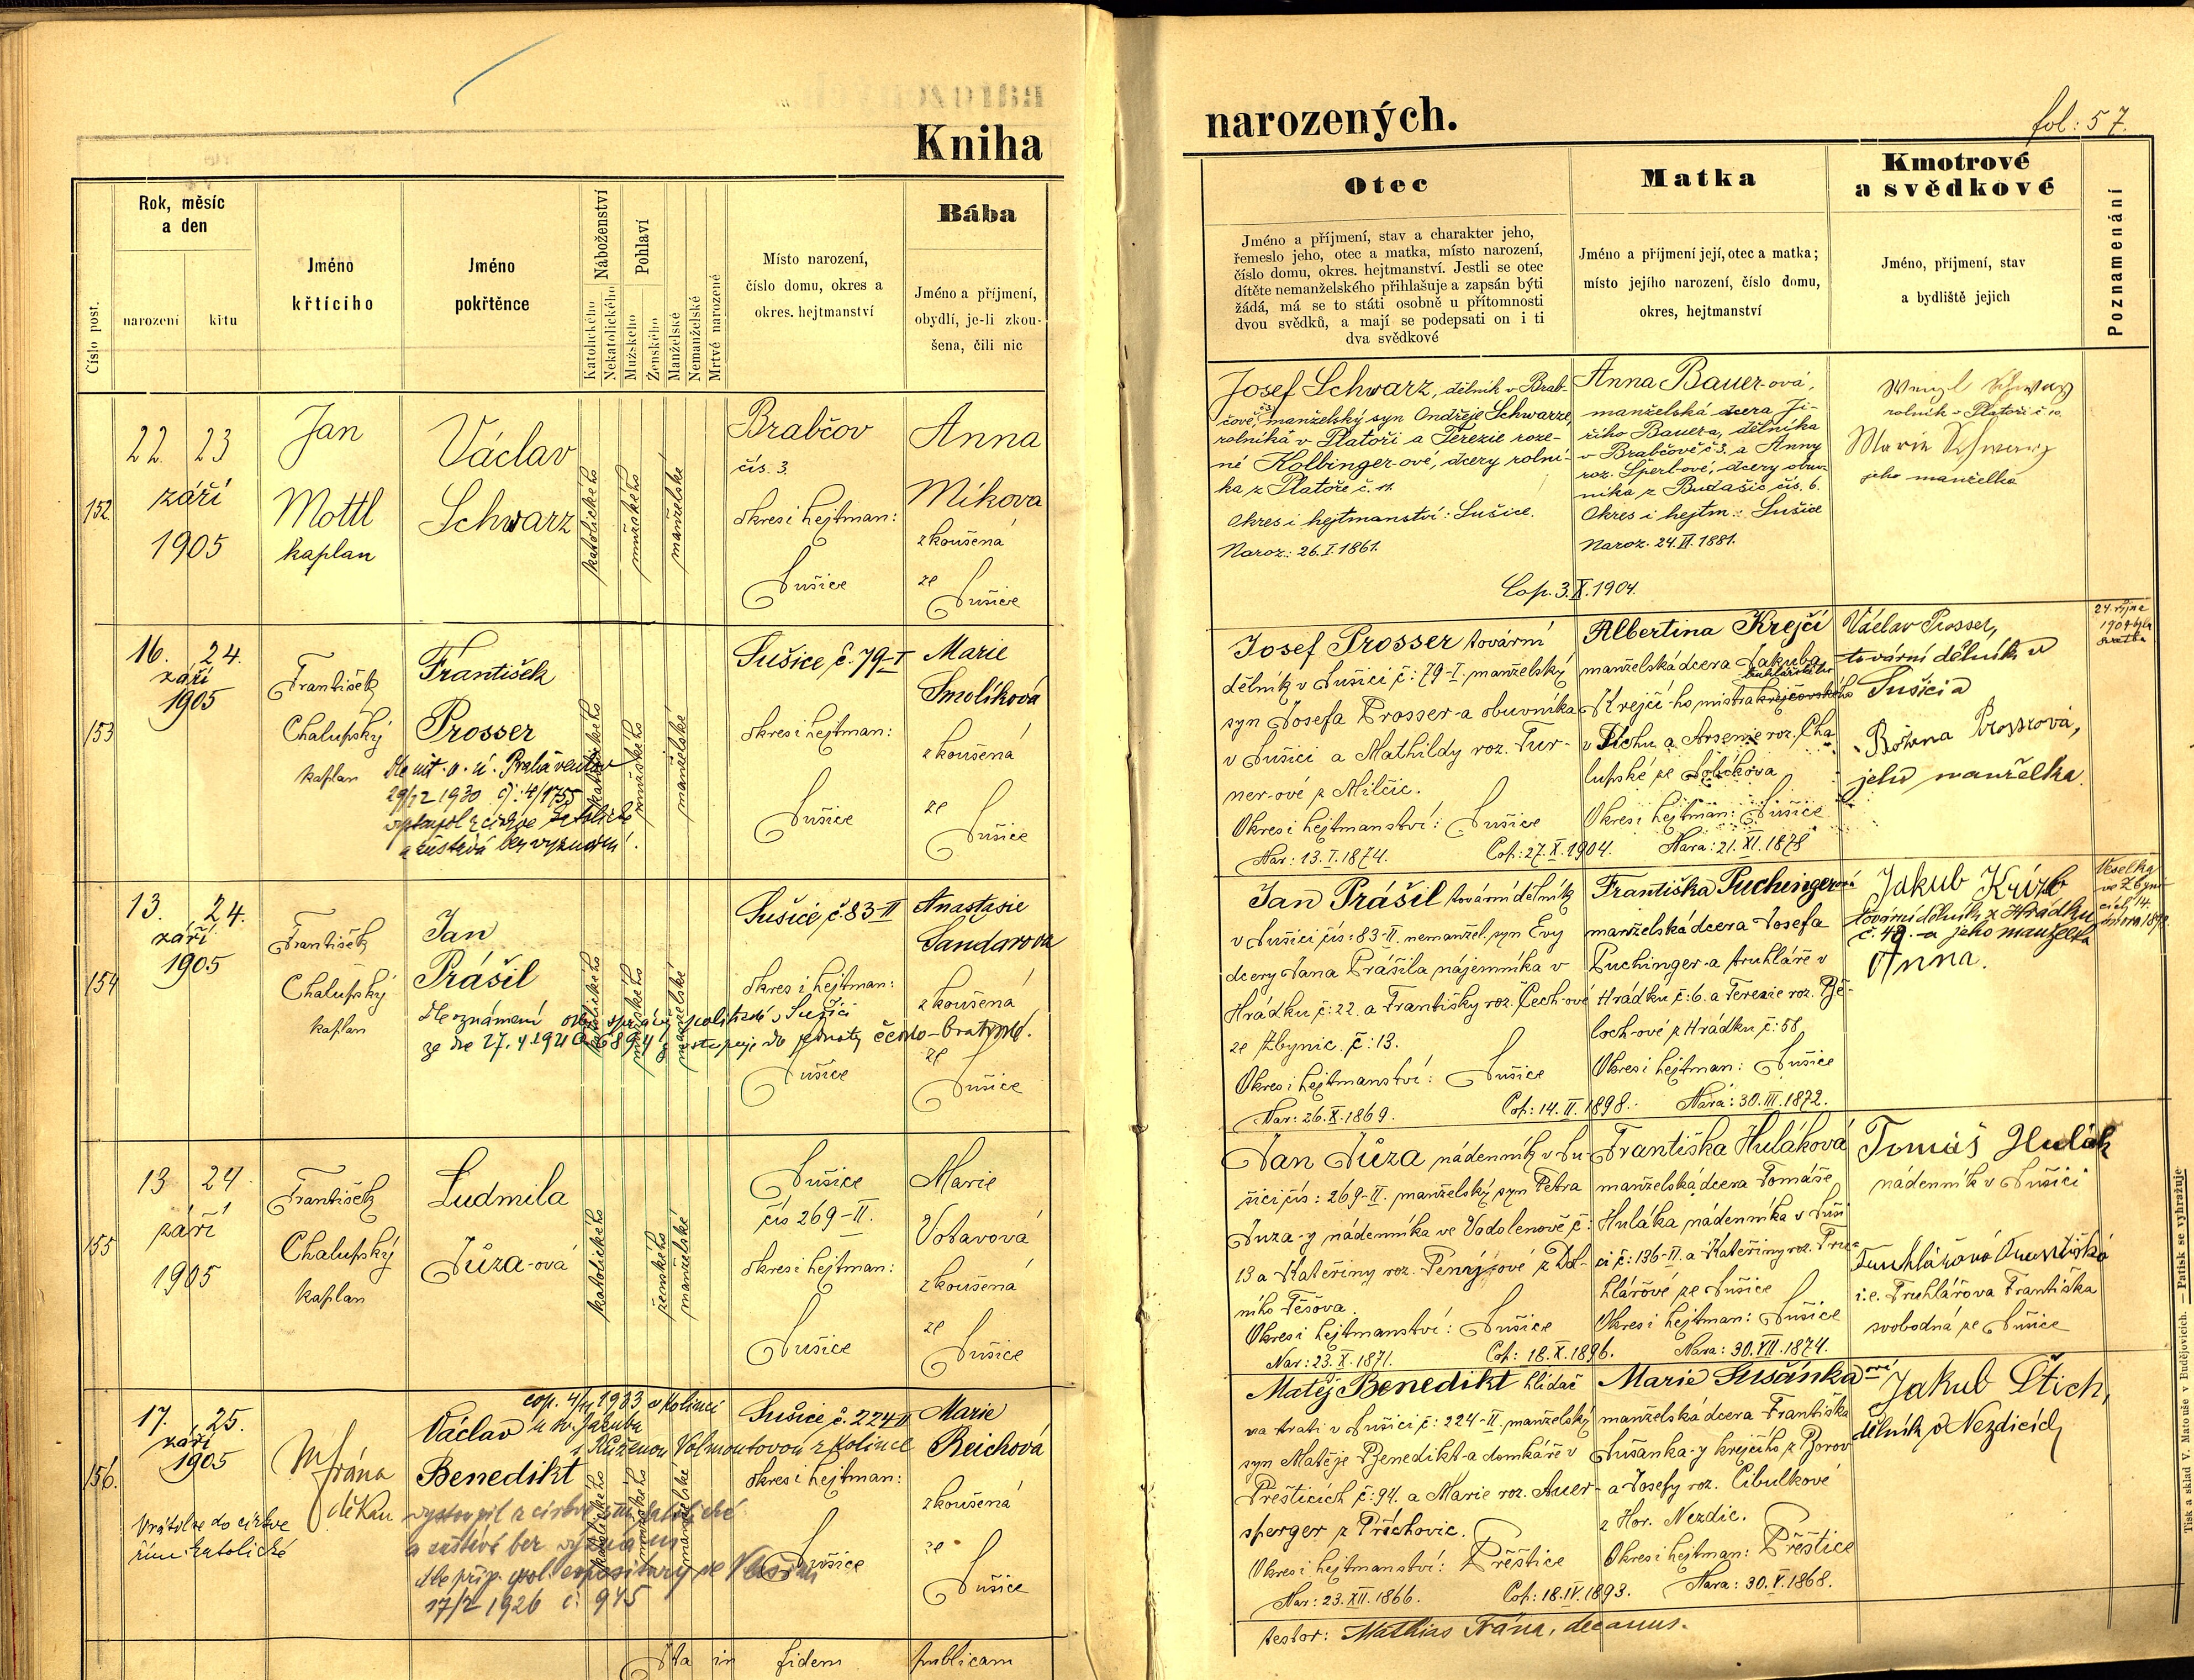 Kniha
narozených.
fol: 57.
Číslo post.
Rok, měsíc
a den
narození
křtu
Jméno
křtícího
Jméno
pokřtěnce
Náboženství
Katolického
Nekatolického
Pohlaví
Mužského
Ženského
Manželské
Nemanželské
Mrtvě narozené
Místo narození,
číslo domu, okres a
okres. hejtmanství
Bába
Jméno a příjmení,
obydlí, je-li zkou-
šena, čili nic
Otec
Jméno a příjmení, stav a charakter jeho,
řemeslo jeho, otec a matka, místo narození,
číslo domu, okres. hejtmanství. Jestli se otec
dítěte nemanželského přihlašuje a zapsán býti
žádá, má se to státi osobně u přítomnosti
dvou svědků, a mají se podepsati on i ti
dva svědkové
Matka
Jméno a příjmení její, otec a matka;
místo jejího narození, číslo domu,
okres, hejtmanství
Kmotrové
a svědkové
Jméno, příjmení, stav
a bydliště jejich
Poznamenání
152.
22. 23
září
1905
Jan
Mottl
kaplan
Václav
Schwarz
katolického
mužského
manželské
Brabčov
čís. 3.
okres i hejtman:
Sušice
Anna
Míkova
zkoušená
ze
Sušice
Josef Schwarz, dělník v Brab-
čově, č3 manželský syn Ondřeje Schwarze,
rolníka v Platoři a Terezie roze-
né Kolbinger-ové, dcery rolní-
ka z Platoře č. 11.
Okres i hejtmanství: Sušice.
Naroz.: 26. I. 1861.
Anna Bauer-ová,
manželská dcera Ji-
řího Bauera, dělníka
v Brabčově č 3. a Anny
roz. Šperl-ové, dcery obuv-
níka z Budašic čís. 6.
Okres i hejtm.: Sušice
Naroz. 24. VI. 1881.
Cop. 3. X. 1904.
Wenzl Schwarz
rolník v Platoři č 10.
Marie Schwarz
jeho manželka
153
16. 24.
září
1905
František
Chalupský
kaplan
František
Prosser
29/12 1930 čj: 4/1755
vystoupil z církve katolické
a zůstává bez vyznání.
katolického
mužského
manželské
Sušice, č. 79-I
okres i hejtman:
Sušice
Marie
Smolíková
zkoušená
ze
Sušice
Josef Prosser tovární
dělník v Sušici č: 79-I. manželský
syn Josefa Prosser-a obuvníka
v Sušici a Mathildy roz. Tur-
ner-ové z Milčic.
Okres i hejtmanství: Sušice
Nar: 13. I. 1874.
Cop: 27. X. 1904.
Albertina Krejčí
manželská dcera Jakuba
truhlářského
Krejčí-ho mistra krejčovského
v Plichu a Arsenie roz. Cha
lupské ze Soběkova
Okres i hejtman: Sušice
Nara: 21. XI. 1878
Václav Prosser,
tovární dělník v
Sušici a
Božena Prossrová,
jeho manželka.
24. října
1904 byla
svatba
154
13. 24.
září
1905
František
Chalupský
kaplan
Jan
Prášil
Dle oznámení okr. správy politické v Sušici
ze dne 27. 4. 1921 č 6894 vstupuje do jednoty česko-bratrské.
katolického
mužského
manželské
Sušice, č 83-II
okres i hejtman:
Sušice
Anastasie
Sandarova
zkoušená
ze
Sušice
Jan Prášil tovární dělník
v Sušici čís: 83-II. nemanžel. syn Evy
dcery Jana Prášila nájemníka v
Hrádku č: 22. a Františky roz. Čech-ové
ze Zbynic. č: 13.
Okres i hejtmanství: Sušice
Nar: 26. X. 1869.
Cop: 14. II. 1898.
Františka Puchingerová
manželská dcera Josefa
Puchinger-a truhláře v
Hrádku č: 6. a Terezie roz. Bě-
loch-ové z Hrádku č: 58,
Okres i hejtman: Sušice
Nara: 30. III. 1872.
Jakub Kříž
tovární dělník z Hrádku
č. 49. a jeho manželka
Anna.
Veselka
ve Zbyni-
cích 14.
února 1898
155
13 24
září
1905
František
Chalupský
kaplan
Ludmila
Jůza-ová
katolického
ženského
manželské
Sušice
čís 269-II.
okres i hejtman:
Sušice
Marie
Votavová
zkoušená
ze
Sušice
Jan Jůza nádenník v Su-
šici čís: 269-II. manželský syn Petra
Juza-y nádenníka ve Vodolenově č:
13 a Kateřiny roz. Penýzové z Dol-
ního Těšova.
Okres i hejtmanství: Sušice
Nar: 23. X. 1871.
Cop: 18. X. 1896.
Františka Huláková
manželská dcera Tomáše
Huláka nádenníka v Suši
ci č: 136-II. a Kateřiny roz. Tru-
hlářové ze Sušice
Okres i hejtman: Sušice
Nara: 30. VII. 1874.
Tomáš Hulák
nádenník v Sušici
Truhlářová Františka
i.e. Truhlářova Františka
svobodná ze Sušice
156.
17. 25.
září
1905
Vrátil se do církve
řím. katolické
M Frána
děkan
cop. 4/11 1933 v Kolinci
Václav u sv. Jakuba
s Růženou Valmontovou z Kolince
Benedikt
vystoupil z církve řím. katolické
a zůstává bez vyznání
17/2 1926 č: 945
katolického
mužského
manželské
Sušice č. 224 II
okres i hejtman:
Sušice
Marie
Reichová
zkoušená
ze
Sušice
Matěj Benedikt hlídač
na trati v Sušici č: 224-II. manželský
syn Matěje Benedikt-a domkáře v
Přešticích č: 94. a Marie roz. Auer-
sperger z Příchovic.
Okres i hejtmanství: Přeštice
Nar: 23. XII. 1866.
Cop: 18. IV. 1893.
Marie Sušánková
manželská dcera Františka
Sušanka-y krejčího z Borov
a Josefy roz. Cibulkové
z Hor. Nezdic.
Okres i hejtman: Přeštice
Nara: 30. V. 1868.
Jakub Štich,
dělník v Nezdicích
Ita in fidem publicam
testor: Mathias Frána, decanus.
Tisk a sklad V. Matouše v Budějovicích. — Patisk se vyhražuje